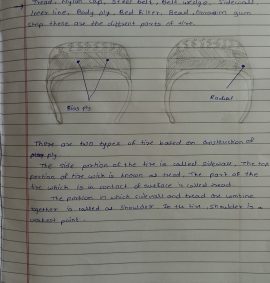 → Tread, Nylon cap, Steel belt, Belt wedge, Sidewall,
Inner line, Body ply, Bed filler, Bead, gum
strip. these are the diffrent parts of tire.
Bias ply
Radial
There are two types of tire based on construction of
ply
The side portion of the tire is called sidewall. The top
portion of tire wich is known as tread. The part of the
tire which is in contact of surface is called tread.
The portion in which sidewall and tread are combine
together is called as shoulder. In the tire, shoulder is a
weakest point.